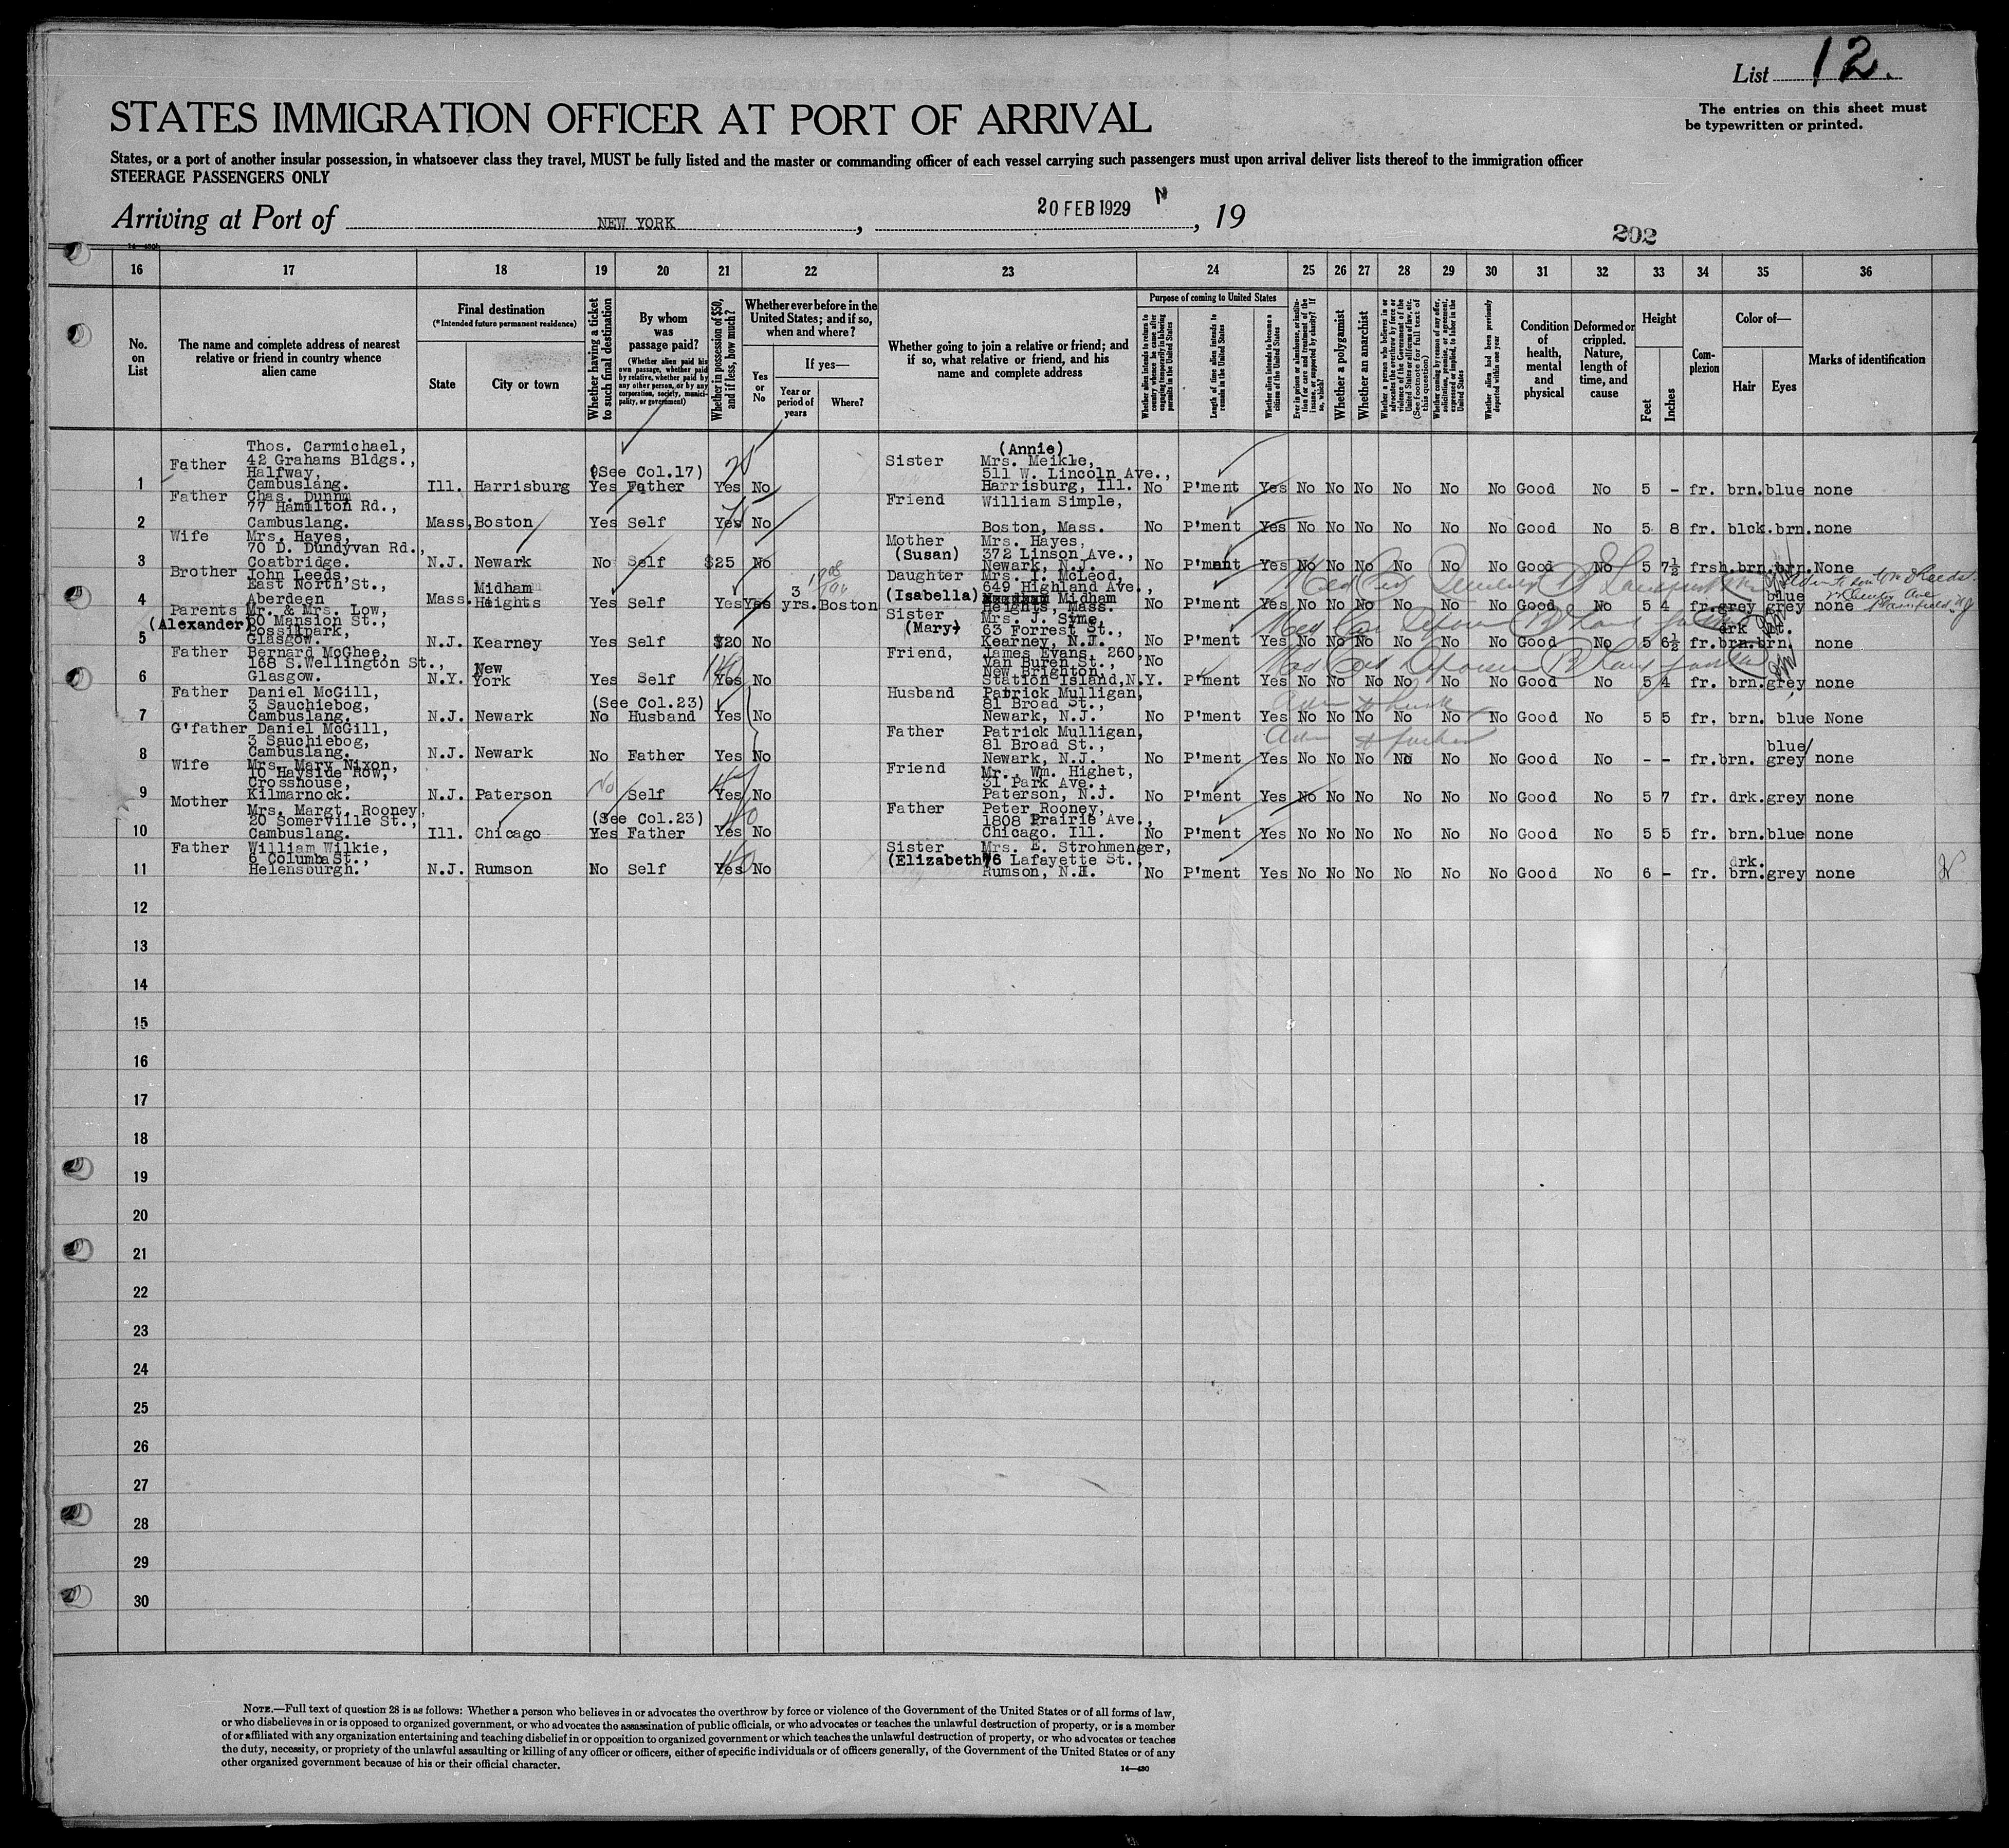 List 12.
The entries on this sheet must
be typewritten or printed.
STATES IMMIGRATION OFFICER AT PORT OF ARRIVAL
States, or a port of another insular possession, in whatsoever class they travel, MUST be fully listed and the master or commanding officer of each vessel carrying such passengers must upon arrival deliver lists thereof to the immigration officer
STEERAGE PASSENGERS ONLY
Arriving at Port of NEW YORK, 20 FEB 1929, 19
202
16 17 18 19 20 21 22 23 24 25 26 27 28 29 30 31 32 33 34 35 36
No. on List
The name and complete address of nearest relative or friend in country whence alien came
Final destination
(*Intended future permanent residence)
State
City or town
Whether having a ticket to such final destination
By whom was passage paid?
(Whether alien paid his own passage, whether paid by relative, whether paid by any other person, or by any corporation, society, municipality, or government)
Whether in possession of $50, and if less, how much?
Whether ever before in the United States; and if so, when and where?
Yes or No
If yes—
Year or period of years
Where?
Whether going to join a relative or friend; and if so, what relative or friend, and his name and complete address
Purpose of coming to United States
Whether alien intends to return to country whence he came after engaging temporarily in laboring pursuits in the United States
Length of time alien intends to remain in the United States
Whether alien intends to become a citizen of the United States
Ever in prison or almshouse, or institution for care and treatment of the insane, or supported by charity? If so, which?
Whether a polygamist
Whether an anarchist
Whether a person who believes in or advocates the overthrow by force or violence of the Government of the United States or all forms of law, etc. (See footnote for full text of this question)
Whether coming by reason of any offer, solicitation, promise, or agreement, expressed or implied, to labor in the United States
Whether alien had been previously deported within one year
Condition of health, mental and physical
Deformed or crippled. Nature, length of time, and cause
Height
Feet
Inches
Complexion
Color of—
Hair
Eyes
Marks of identification
1 Father Thos. Carmichael, 42 Grahams Bldgs., Halfway, Cambuslang. Ill. Harrisburg Yes (See Col.17) Father Yes No Sister (Annie) Mrs. Meikle, 511 W. Lincoln Ave., Harrisburg, Ill. No P'ment Yes No No No No No No Good No 5 - fr. brn. blue none
2 Father Chas. Dunnm 77 Hamilton Rd., Cambuslang. Mass, Boston Yes Self Yes No Friend William Simple, Boston, Mass. No P'ment Yes No No No No No No Good No 5 8 fr. blck. brn. none
3 Wife Mrs. Hayes, 70 D. Dundyvan Rd., Coatbridge. N.J. Newark No Self $25 No Mother (Susan) Mrs. Hayes, 372 Linson Ave., Newark, N.J. No P'ment Yes No No No No No No Good No 5 7½ frsh. brn. brn. None
4 Brother John Leeds, East North St., Aberdeen Mass. Midham Heights Yes Self Yes Yes 3 yrs. Boston Daughter (Isabella) Mrs. I. McLeod, 649 Highland Ave., Midham Heights, Mass. No P'ment Yes No No No No No No Good No 5 4 fr. grey blue grey none
5 Parents (Alexander) Mr. & Mrs. Low, 60 Mansion St., Possilpark, Glasgow. N.J. Kearney Yes Self $20 No Sister (Mary) Mrs. J. Syme, 63 Forrest St., Kearney, N.J. No P'ment Yes No No No No No No Good No 5 6½ fr. drk brn. lt. brn. none
6 Father Bernard McGhee, 168 S.Wellington St., Glasgow. N.Y. New York Yes Self Yes No Friend, James Evans, 260, Van Buren St., New Brighton, Station Island, N.Y. No P'ment Yes No No No No No No Good No 5 4 fr. brn. grey none
7 Father Daniel McGill, 3 Sauchiebog, Cambuslang. N.J. Newark No (See Col.23) Husband Yes No Husband Patrick Mulligan, 81 Broad St., Newark, N.J. No P'ment Yes No No No No No No Good No 5 5 fr. brn. blue None
8 G'father Daniel McGill, 3 Sauchiebog, Cambuslang. N.J. Newark No Father Yes No Father Patrick Mulligan, 81 Broad St., Newark, N.J. No P'ment Yes No No No No No No Good No - - fr. brn. blue/ grey none
9 Wife Mrs. Mary Nixon, 10 Hayside Row, Crosshouse, Kilmarnock. N.J. Paterson No Self Yes No Friend Mr. Wm. Highet, 31 Park Ave., Paterson, N.J. No P'ment Yes No No No No No No Good No 5 7 fr. drk. grey none
10 Mother Mrs. Margt. Rooney, 20 Somerville St., Cambuslang. Ill. Chicago Yes (See Col.23) Father Yes No Father Peter Rooney, 1808 Prairie Ave., Chicago. Ill. No P'ment Yes No No No No No No Good No 5 5 fr. brn. blue none
11 Father William Wilkie, 6 Columba St., Helensburgh. N.J. Rumson No Self Yes No Sister (Elizabeth) Mrs. E. Strohmenger, 76 Lafayette St., Rumson, N.J. No P'ment Yes No No No No No No Good No 6 - fr. drk. brn. grey none
12
13
14
15
16
17
18
19
20
21
22
23
24
25
26
27
28
29
30
NOTE.—Full text of question 28 is as follows: Whether a person who believes in or advocates the overthrow by force or violence of the Government of the United States or of all forms of law,
or who disbelieves in or is opposed to organized government, or who advocates the assassination of public officials, or who advocates or teaches the unlawful destruction of property, or is a member
of or affiliated with any organization entertaining and teaching disbelief in or opposition to organized government or which teaches the unlawful destruction of property, or who advocates or teaches
the duty, necessity, or propriety of the unlawful assaulting or killing of any officer or officers, either of specific individuals or of officers generally, of the Government of the United States or of any
other organized government because of his or their official character.
14—430